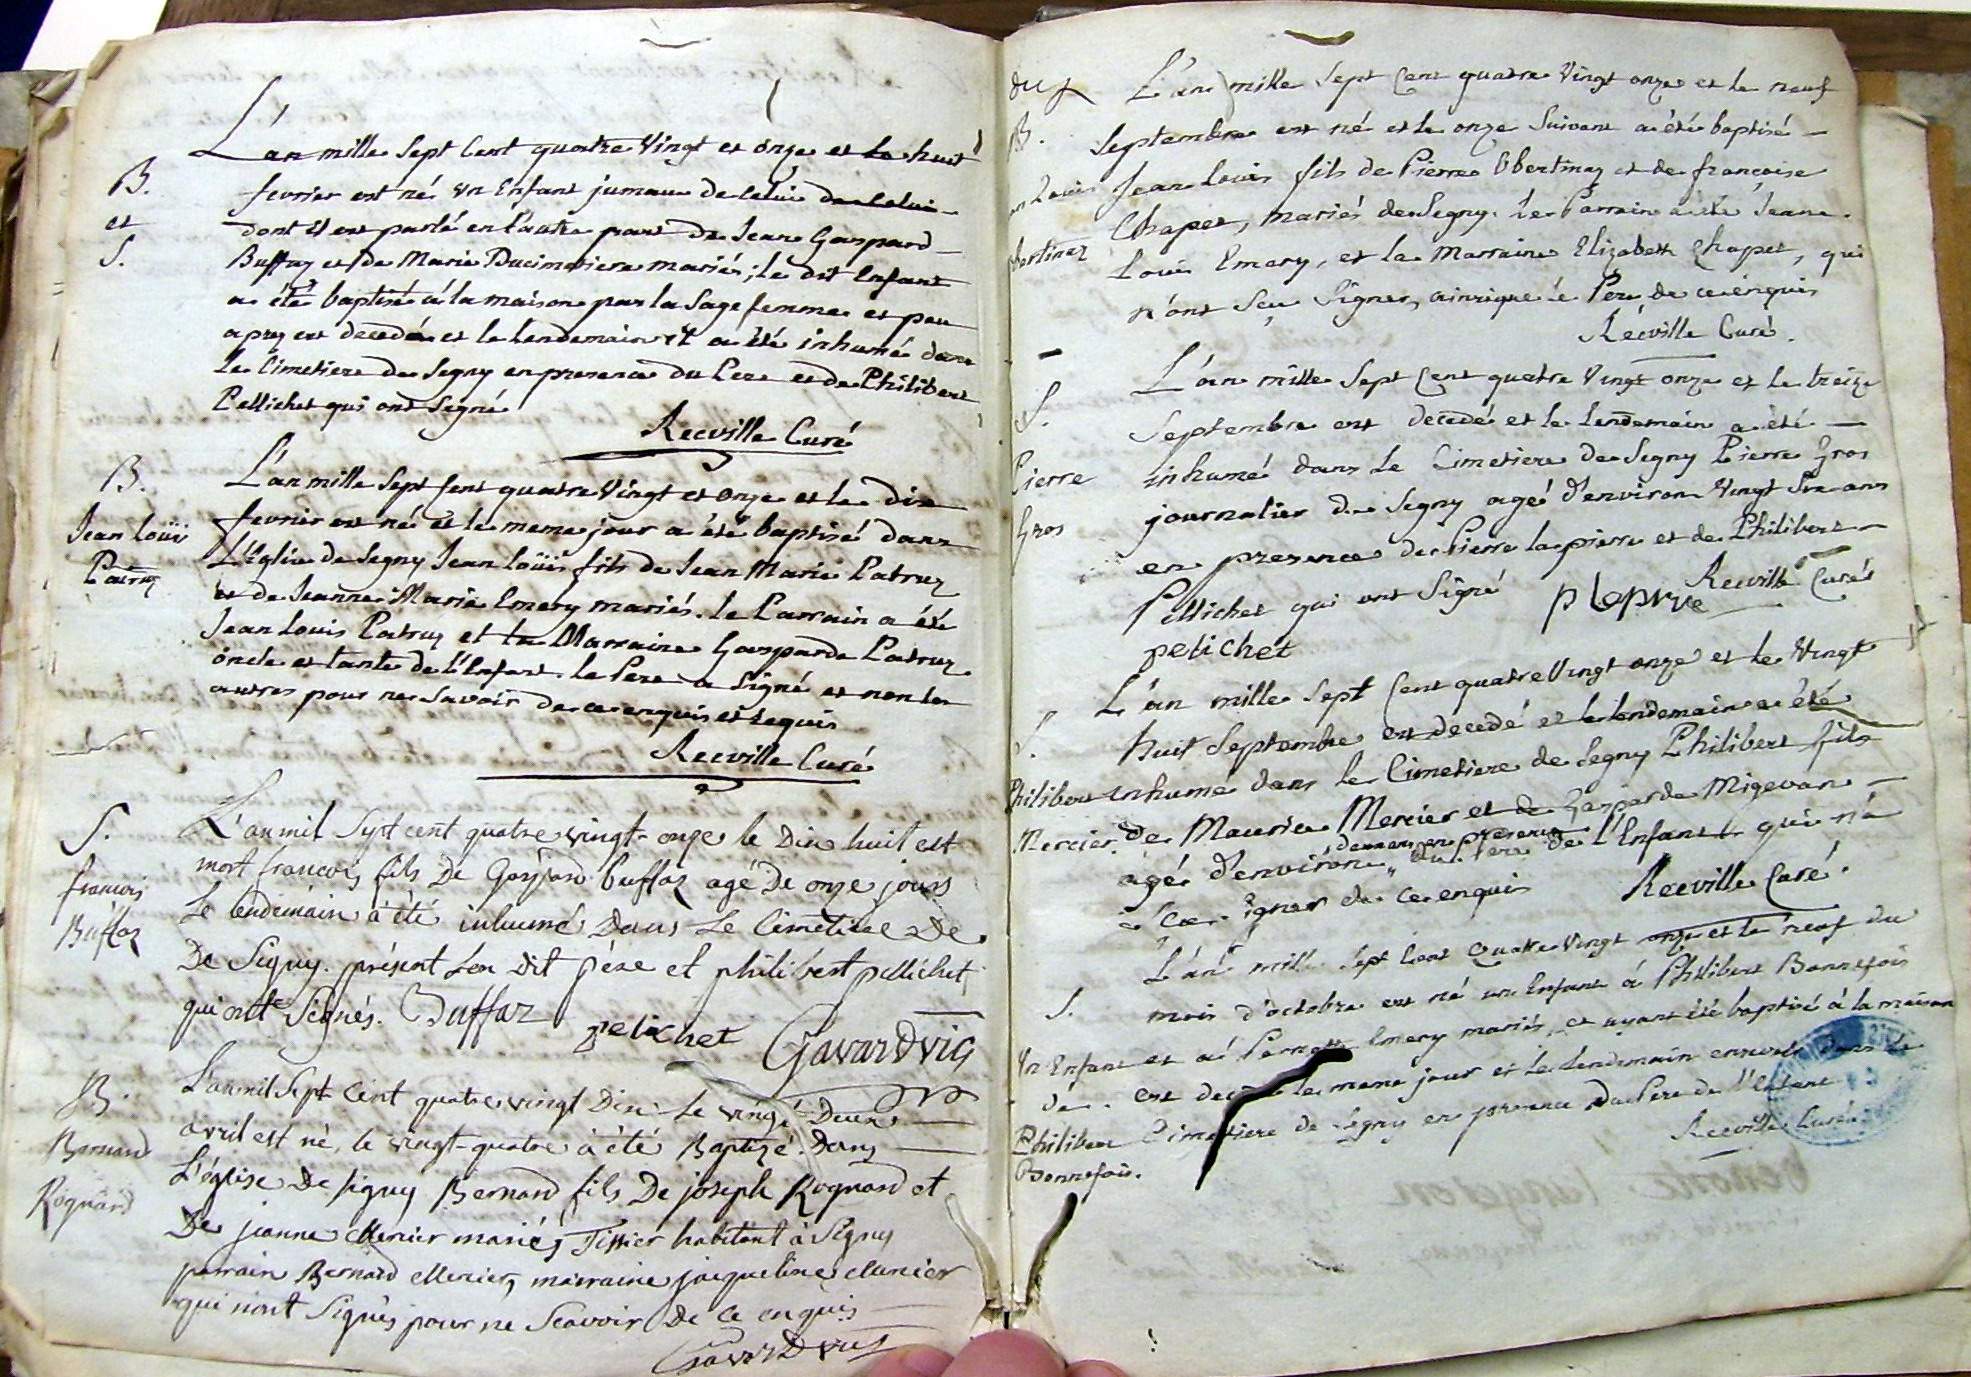 L'an mille Sept Cent quatre Vingt et onze et le huit
B. fevrier est né un Enfant jumau de celui de celui
et dont il est parlé en l'autre part de Jean Gaspard
S. Buffaz et de Marie Ducimetiere mariés; le dit Enfant
a été baptisé à la maison par la Sage femme et peu
apres est decedé et le lendemain il a été inhumé dans
Le Cimetiere de Segny en presence du Pere et de Philibert
Pellichet qui ont Signé
Recville Curé
B. L'an mille Sept Cent quatre Vingt et onze et le dix
Jean Loüis fevrier est né et le meme jour a été baptisé dans
Patruz L'Eglise de Segny Jean Loüis fils de Jean Marie Patruz
et de Jeanne Marie Emery mariés. le Parrain a été
Jean Louis Patruz et la Marraine Gasparde Patruz
oncle et tante de l'Enfant. le Pere a Signé et non les
autres pour ne Savoir de ce enquis et requis
Recville Curé
S. L'an mil Sept cent quatre vingt onze le Dix huit est
francois mort francois fils De Gaspard buffaz agé De onze jours
Buffaz Le lendemain à été inhumé Dans Le Cimetiere De
De Segny. présent Son Dit père et philibert pellichet
qui ont Signés. Buffaz
pelichet Gavard vic
B. L'an mil Sept Cent quatre vingt Dix Le vingt Deux
Bernard avril est né, le vingt quatre à été Baptizé. Dans
Rognard L'église De Signy Bernard fils De joseph Rognard et
De jeanne Mercier mariés Tissier habitant à Signy
parrain Bernard Mercier, marraine jacqueline Mercier
qui n'ont Signés pour ne Scavoir De Ce enquis
Gavard vic
du f L'an mille Sept Cent quatre Vingt onze et le neuf
B. Septembre est né et le onze Suivant a été baptisé
Louis Jean Louis fils de Pierre Ebertinaz et de françoise
Chapet, mariés de Segny. le Parrain a été Jean
bertinaz Louis Emery, et la Marraine Elizabeth Chapet, qui
n'ont Sçu Signer, ainsi que le Pere de ce enquis
Recville Curé.
L'an mille Sept Cent quatre Vingt onze et le treize
S. Septembre est decedé et le lendemain a été
Pierre inhumé dans le Cimetiere de Segny Pierre Gros
Gros journalier de Segny agé d'environ Vingt Six ans
en presence de Pierre Lapierre et de Philibert
Pellichet qui ont Signé p lapiere Recville Curé
pelichet
L'an mille Sept Cent quatre Vingt onze et le Vingt
S. huit Septembre est decedé et le lendemain a été
Philibert inhumé dans le Cimetiere de Segny Philibert fils
Mercier de Maurice Mercier et de Gasparde Migevan
agé d'environ deux ans en presence du Pere de l'Enfant qui n'a
Signer de ce enquis Recville Curé.
L'an mille Sept Cent Quatre Vingt onze et le neuf du
S. mois d'octobre est né un Enfant à Philibert Bonnefois
Un Enfant et à Pernette Emery mariés, et ayant été baptisé à la maison
de est decedé le meme jour et le lendemain enseveli dans le
Philibert Cimetiere de Segny en presence du Pere de l'Enfant
Bonnefois. Recville Curé